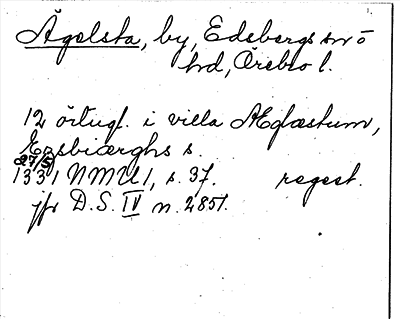 Ägelsta, by, Edsbergs sn o
hd, Örebro l.
12 örtugl. i villa Æglæstum,
Egsbiærghs s.
27/5
1331 NMU 1, s. 37. regest.
jfr D.S. IV n. 2851.